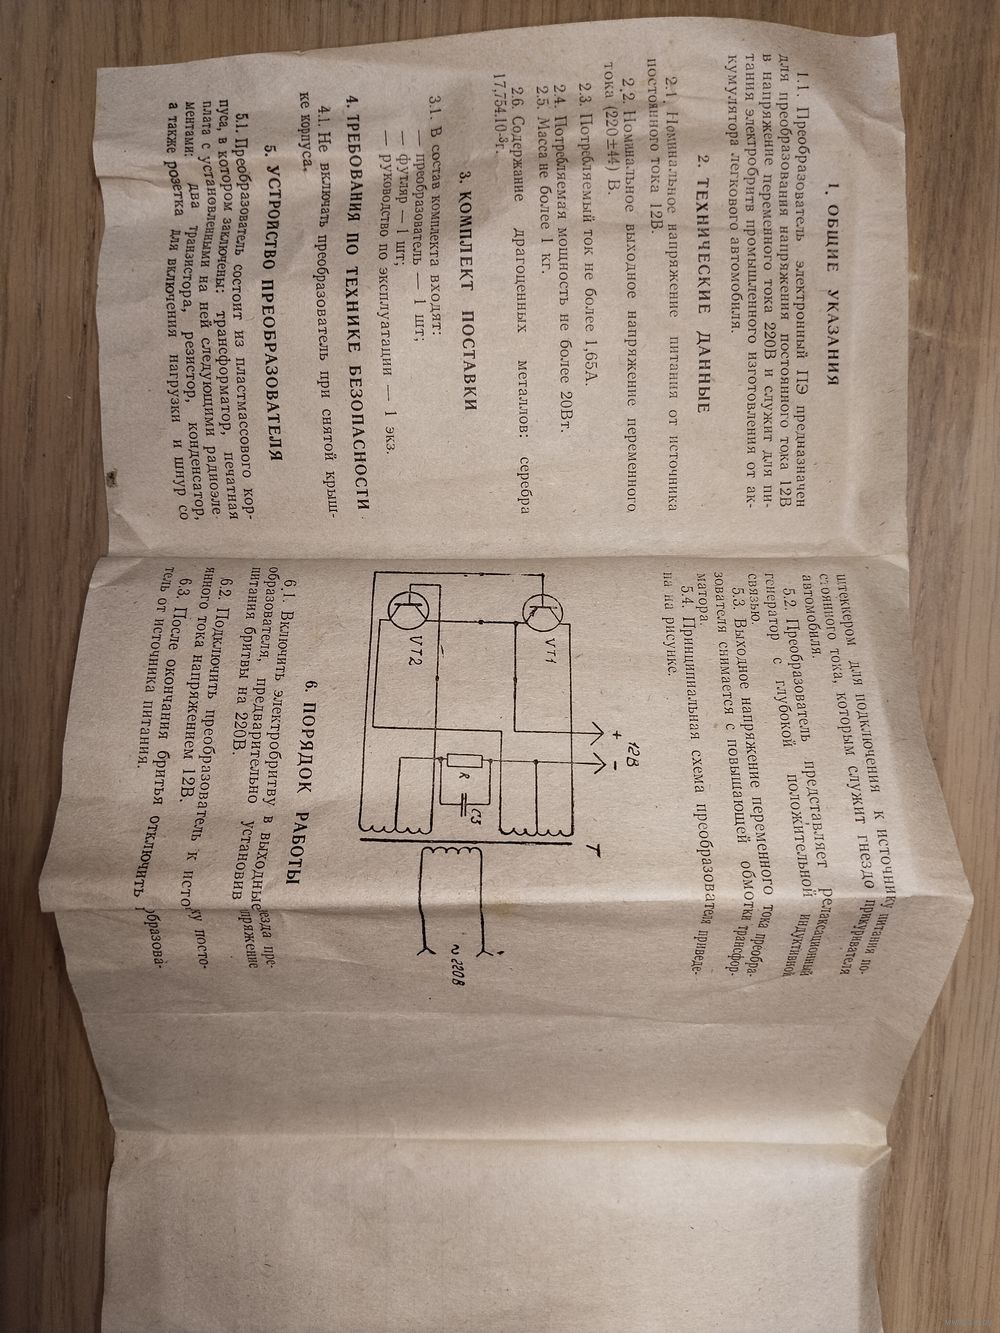 1. ОБЩИЕ УКАЗАНИЯ
1.1. Преобразователь электронный ПЭ предназначен
для преобразования напряжения постоянного тока 12В
в напряжение переменного тока 220В и служит для пи-
тания электробритв промышленного изготовления от ак-
кумулятора легкового автомобиля.
2. ТЕХНИЧЕСКИЕ ДАННЫЕ
2.1. Номинальное напряжение питания от источника
постоянного тока 12В.
2.2. Номинальное выходное напряжение переменного
тока (220±44) В.
2.3. Потребляемый ток не более 1,65А.
2.4. Потребляемая мощность не более 20Вт.
2.5. Масса не более 1 кг.
2.6. Содержание драгоценных металлов: серебра
17,754.10-3г.
3. КОМПЛЕКТ ПОСТАВКИ
3.1. В состав комплекта входят:
— преобразователь — 1 шт;
— футляр — 1 шт;
— руководство по эксплуатации — 1 экз.
4. ТРЕБОВАНИЯ ПО ТЕХНИКЕ БЕЗОПАСНОСТИ
4.1. Не включать преобразователь при снятой крыш-
ке корпуса.
5. УСТРОЙСТВО ПРЕОБРАЗОВАТЕЛЯ
5.1. Преобразователь состоит из пластмассового кор-
пуса, в котором заключены: трансформатор, печатная
плата с установленными на ней следующими радиоэле
ментами: два транзистора, резистор, конденсатор,
а также розетка для включения нагрузки и шнур со
штеккером для подключения к источнику питания по-
стоянного тока, которым служит гнездо прикуривателя
автомобиля.
5.2. Преобразователь представляет релаксационный
генератор с глубокой положительной индуктивной
связью.
5.3. Выходное напряжение переменного тока преобра-
зователя снимается с повышающей обмотки трансфор-
матора.
5.4. Принципиальная схема преобразователя приведе-
на на рисунке.
12В
+ −
VT1
VT2
R
C3
T
~220В
6. ПОРЯДОК РАБОТЫ
6.1. Включить электробритву в выходные езда пре-
образователя, предварительно установив пряжение
питания бритвы на 220В.
6.2. Подключить преобразователь к исто ку посто-
янного тока напряжением 12В.
6.3. После окончания бритья отключить образова-
тель от источника питания.